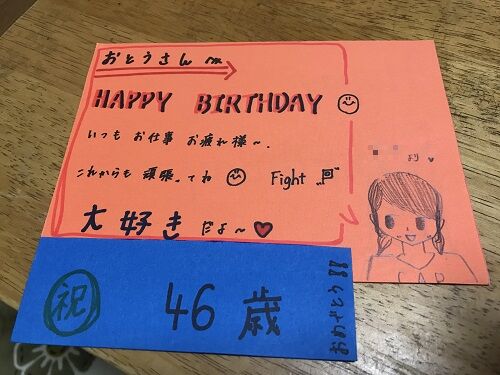 おとうさんへ
HAPPY BIRTHDAY
いつも お仕事 お疲れ様〜。
これからも 頑張ってね Fight
大好きだよ〜
より
CAP
祝 46歳
おめでとう!!